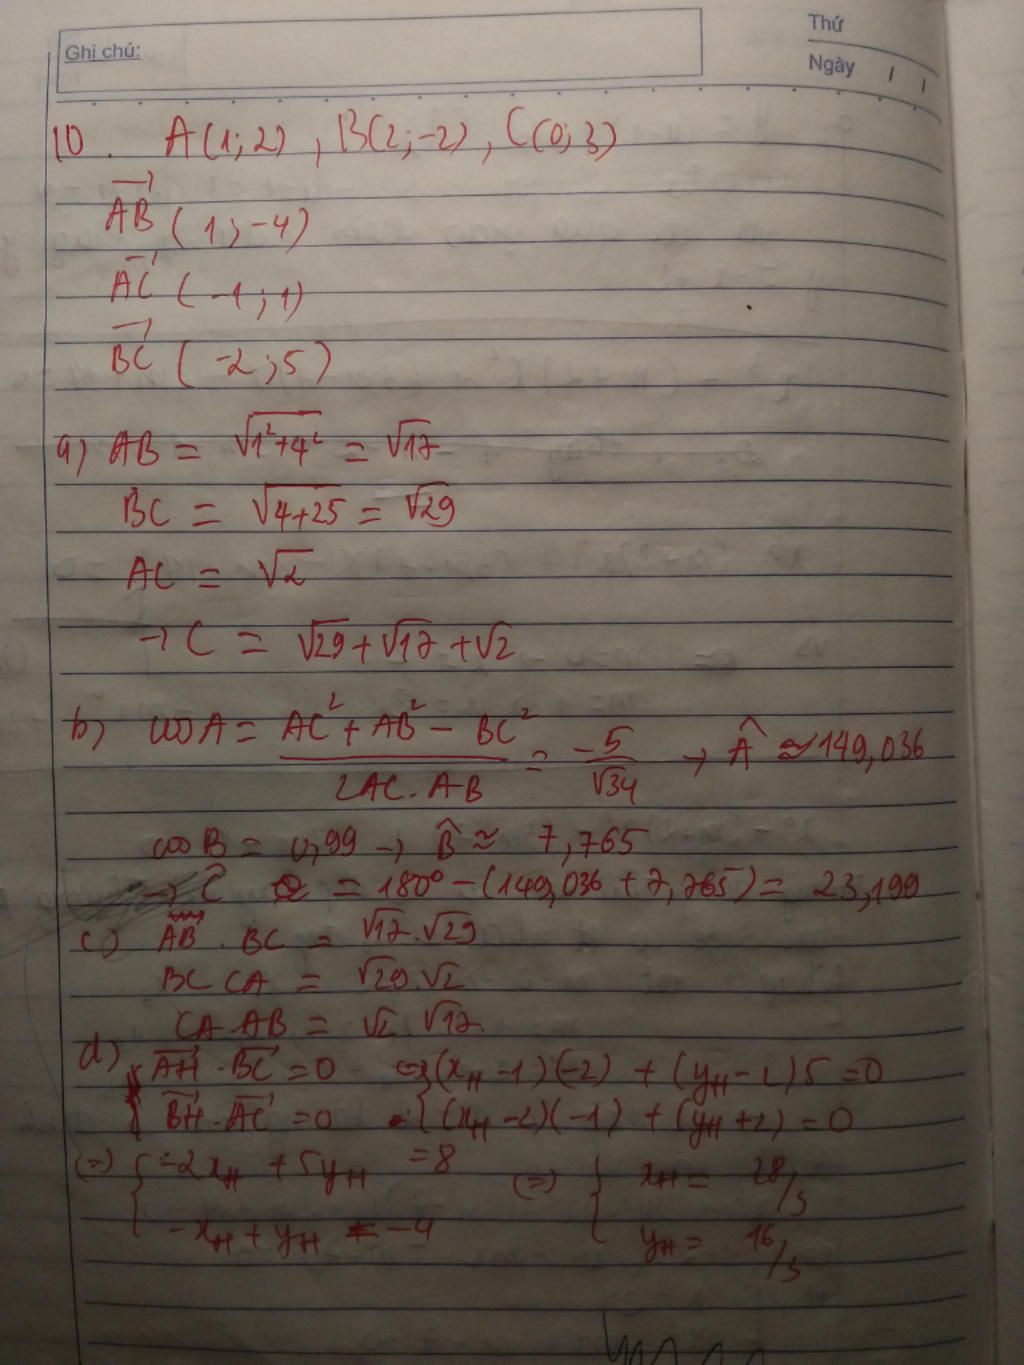 Thứ
Ghi chú:
Ngày / /
10. A(1;2), B(2;-2), C(0;3)
AB→ (1;-4)
AC→ (-1;1)
BC→ (-2;5)
a) AB = √(1²+4²) = √17
BC = √(4+25) = √29
AC = √2
→ C = √29 + √17 + √2
b) cosA = (AC² + AB² - BC²)/(2AC.AB) = -5/√34 → Â ≈ 149,036
cosB = 0,99 → B̂ ≈ 7,765
→ Ĉ = 180° - (149,036 + 7,765) = 23,199
c) AB . BC = √17.√29
BC CA = √29.√2
CA.AB = √2.√17.
d) { AH→ . BC→ = 0 ⇔ { (xH - 1)(-2) + (yH - 2)5 = 0
BH→ . AC→ = 0 (xH - 2)(-1) + (yH + 2) = 0
(=) { -2xH + 5yH = 8 (=) { xH = 28/3
-xH + yH = -4 yH = 16/3